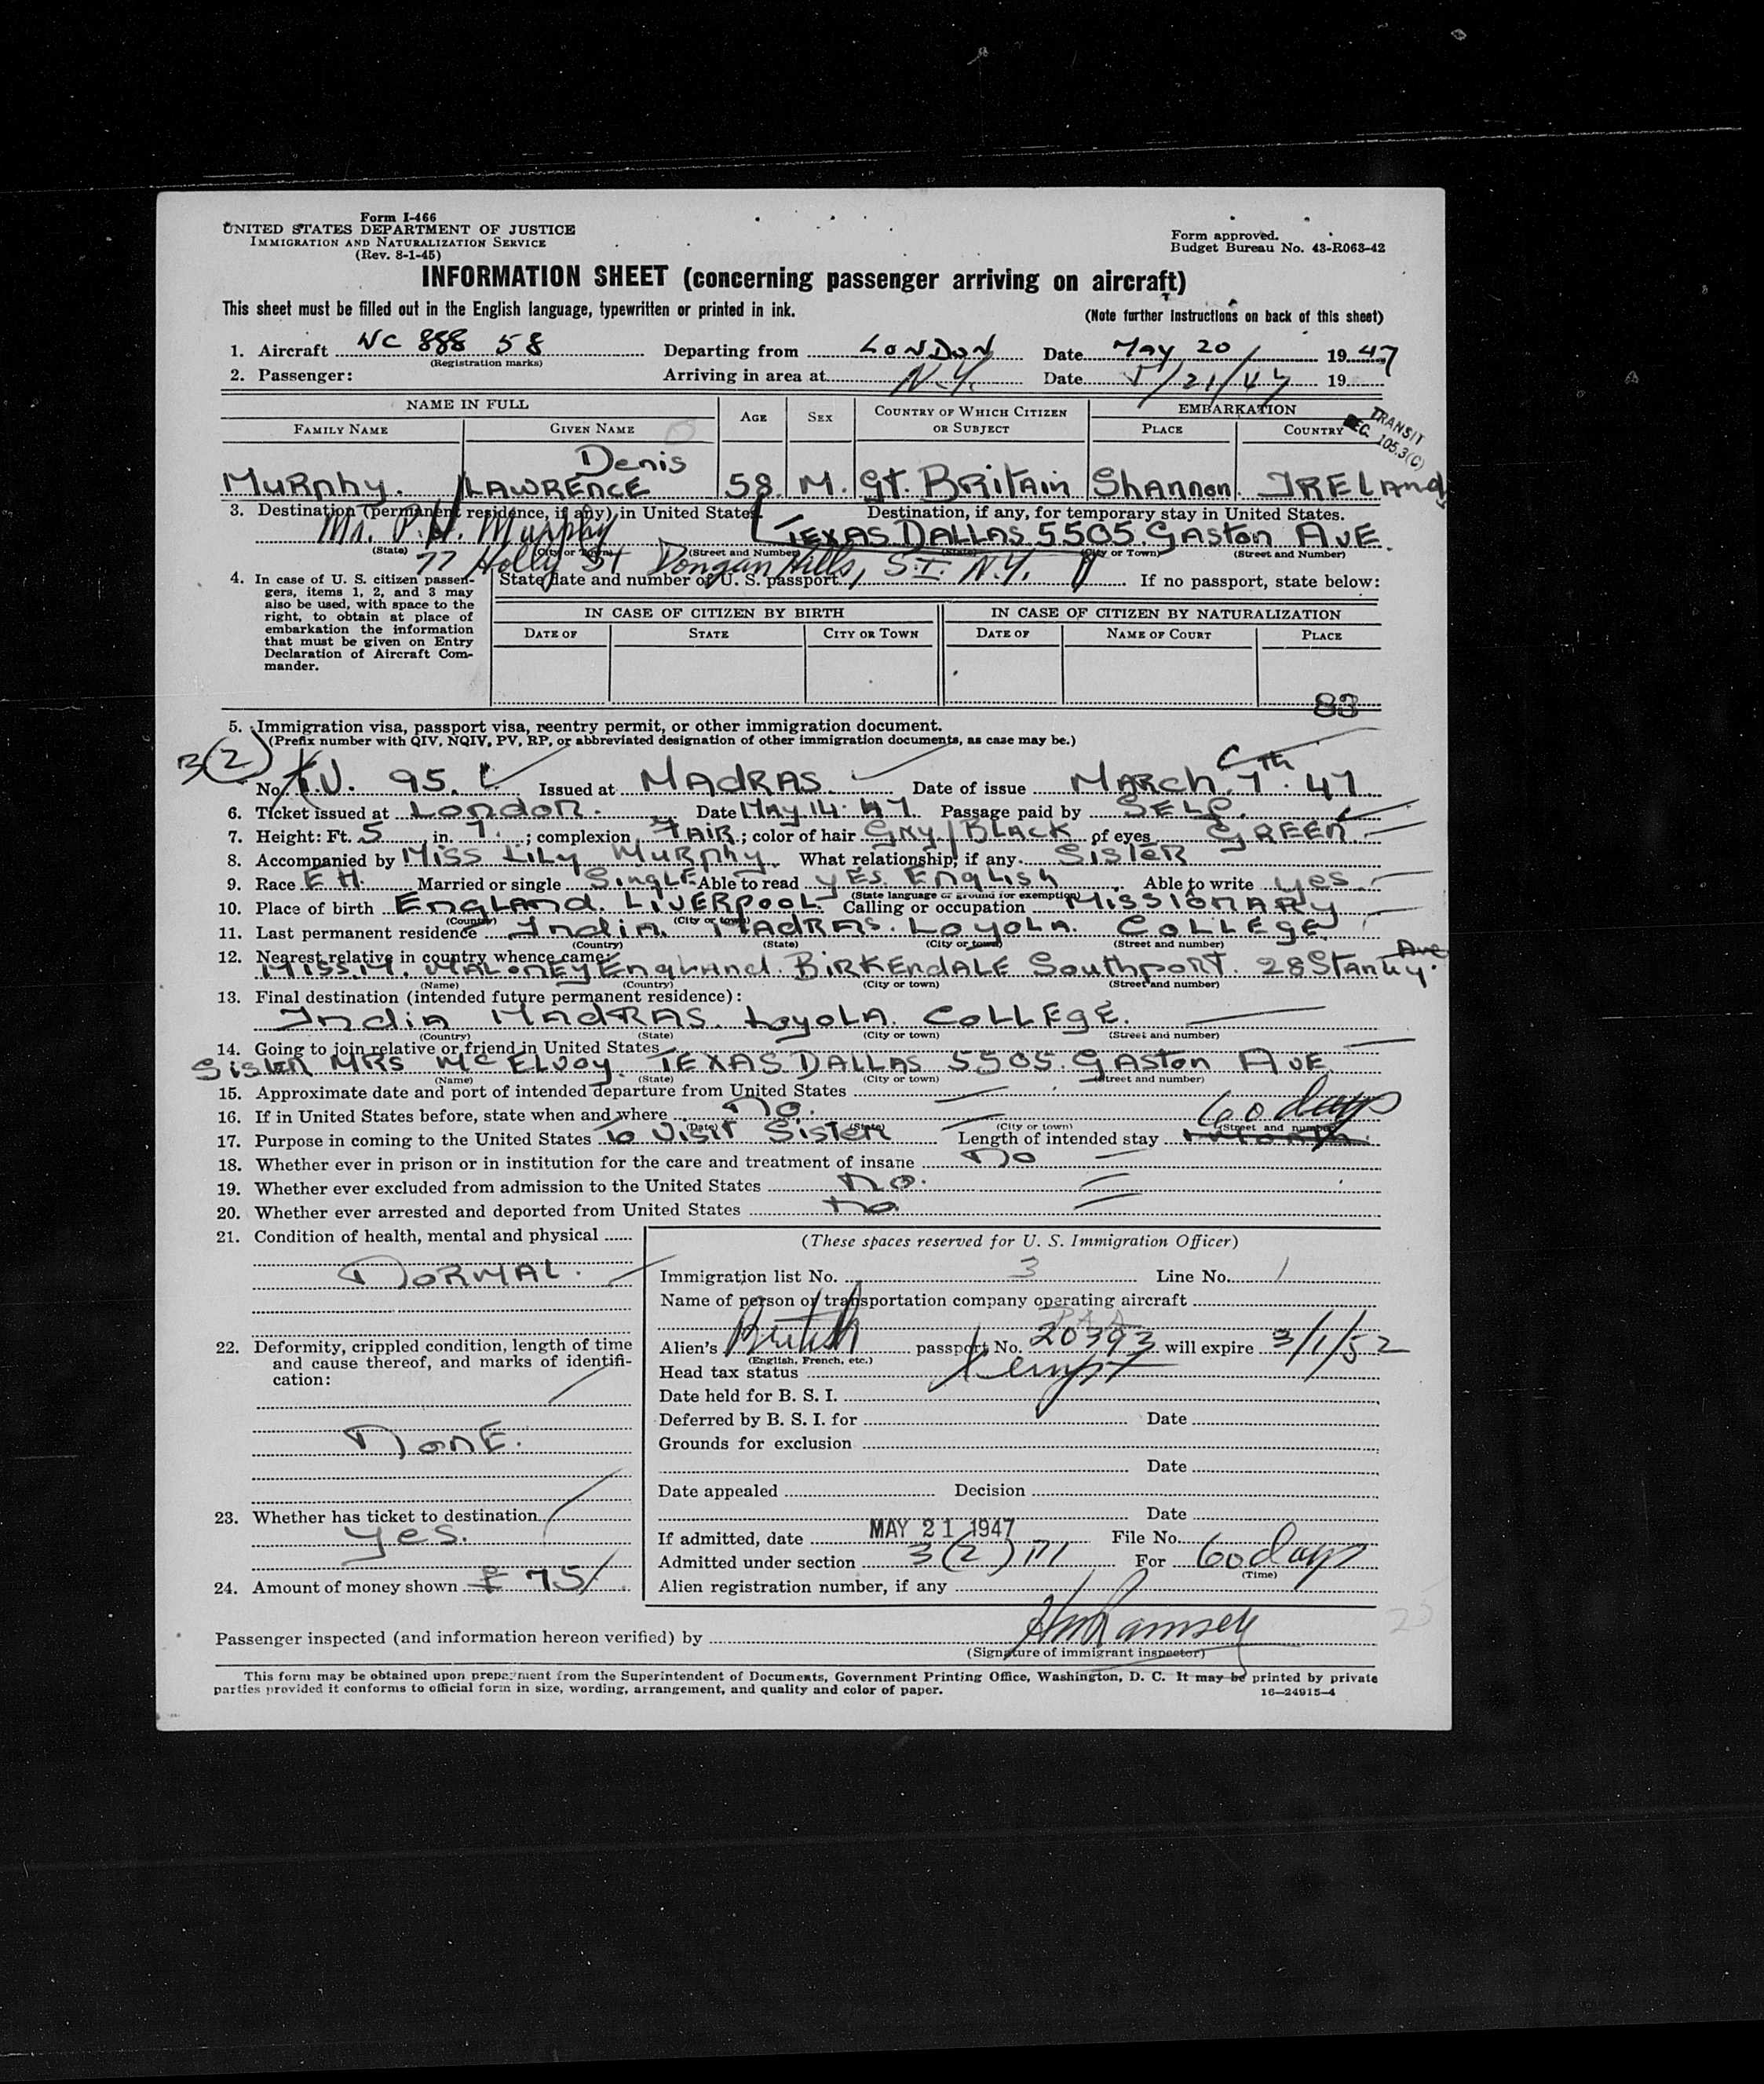 Form I-466
UNITED STATES DEPARTMENT OF JUSTICE
IMMIGRATION AND NATURALIZATION SERVICE
(Rev. 8-1-45)
Form approved.
Budget Bureau No. 43-R063-42
INFORMATION SHEET (concerning passenger arriving on aircraft)
This sheet must be filled out in the English language, typewritten or printed in ink.
(Note further instructions on back of this sheet)
1. Aircraft NC 888 58 Departing from LONDON Date May 20 1947
(Registration marks)
2. Passenger: Arriving in area at N.Y. Date 5/21/47 19
NAME IN FULL AGE SEX COUNTRY OF WHICH CITIZEN OR SUBJECT EMBARKATION
FAMILY NAME GIVEN NAME PLACE COUNTRY
TRANSIT
SEC. 105.3(C)
Denis
MURPHY. LAWRENCE 58 M. Gt. BRitain Shannon. IRELand
3. Destination (permanent residence, if any) in United States Destination, if any, for temporary stay in United States.
Mr. P.H. Murphy TEXAS DALLAS 5505 Gaston AVE.
(State) (City or Town) (Street and Number) (State) (City or Town) (Street and Number)
77 Holly St Dongan Hills, S.I. N.Y.
4. In case of U. S. citizen passengers, items 1, 2, and 3 may also be used, with space to the right, to obtain at place of embarkation the information that must be given on Entry Declaration of Aircraft Commander.
State date and number of U. S. passport If no passport, state below:
IN CASE OF CITIZEN BY BIRTH IN CASE OF CITIZEN BY NATURALIZATION
DATE OF STATE CITY OR TOWN DATE OF NAME OF COURT PLACE
83
5. Immigration visa, passport visa, reentry permit, or other immigration document.
(Prefix number with QIV, NQIV, PV, RP, or abbreviated designation of other immigration documents, as case may be.)
3(2)
No. T.V. 95. Issued at MADRAS. Date of issue MARCH 7th. 47
6. Ticket issued at London. Date MAY 14. 47. Passage paid by SELF.
7. Height: Ft. 5 in. 7. ; complexion FAIR ; color of hair GRY/BLACK of eyes GREEN.
8. Accompanied by Miss LILY MURPHY What relationship, if any SISTER
9. Race E H. Married or single SingLE Able to read yES English Able to write yes
(State language or ground for exemption)
10. Place of birth ENGLAND. LIVERPOOL Calling or occupation MISSIONARY
(Country) (City or town)
11. Last permanent residence India. MADRAS. LOYOLA. COLLEGE
(Country) (State) (City or town) (Street and number)
12. Nearest relative in country whence came:
Miss M. MALONEY England. BIRKENDALE Southport. 28 Stanley. Ave
(Name) (Country) (City or town) (Street and number)
13. Final destination (intended future permanent residence):
India MADRAS. LoyoLA. COLLEGE.
(Country) (State) (City or town) (Street and number)
14. Going to join relative or friend in United States
Sister MRS McELVOY. TEXAS DALLAS 5505. Gaston AVE
(Name) (State) (City or town) (Street and number)
15. Approximate date and port of intended departure from United States
16. If in United States before, state when and where no.
(Date) (State) (City or town) (Street and number)
17. Purpose in coming to the United States to Visit Sister Length of intended stay 60 days
18. Whether ever in prison or in institution for the care and treatment of insane no
19. Whether ever excluded from admission to the United States no.
20. Whether ever arrested and deported from United States no
21. Condition of health, mental and physical
NORMAL.
22. Deformity, crippled condition, length of time and cause thereof, and marks of identification:
NonE.
23. Whether has ticket to destination
yes.
24. Amount of money shown £ 75/
(These spaces reserved for U. S. Immigration Officer)
Immigration list No. 3 Line No. 1
Name of person or transportation company operating aircraft
Alien's British passport No. 20393 will expire 3/1/52
(English, French, etc.)
Head tax status Xempt
Date held for B. S. I.
Deferred by B. S. I. for Date
Grounds for exclusion
Date
Date appealed Decision
Date
If admitted, date MAY 21 1947 File No.
Admitted under section 3(2) For 60 days
(Time)
Alien registration number, if any
Passenger inspected (and information hereon verified) by HM Ramsey
(Signature of immigrant inspector)
This form may be obtained upon prepayment from the Superintendent of Documents, Government Printing Office, Washington, D. C. It may be printed by private
parties provided it conforms to official form in size, wording, arrangement, and quality and color of paper. 16—24915-4